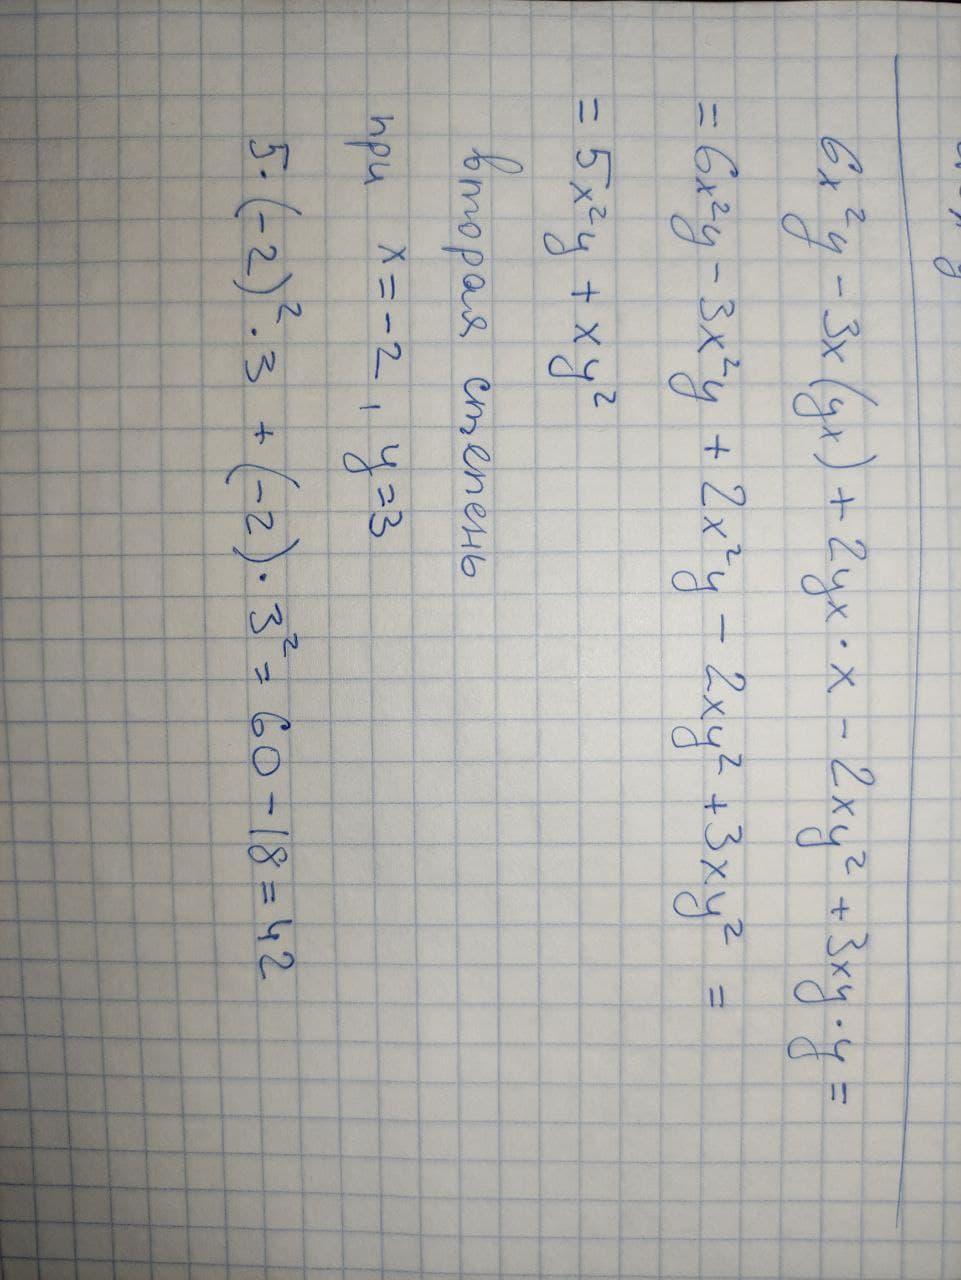 6x²y - 3x(yx) + 2yx · x - 2xy² + 3xy · y =
= 6x²y - 3x²y + 2x²y - 2xy² + 3xy² =
= 5x²y + xy²
вторая степень
при x = -2, y = 3
5 · (-2)² · 3 + (-2) · 3² = 60 - 18 = 42